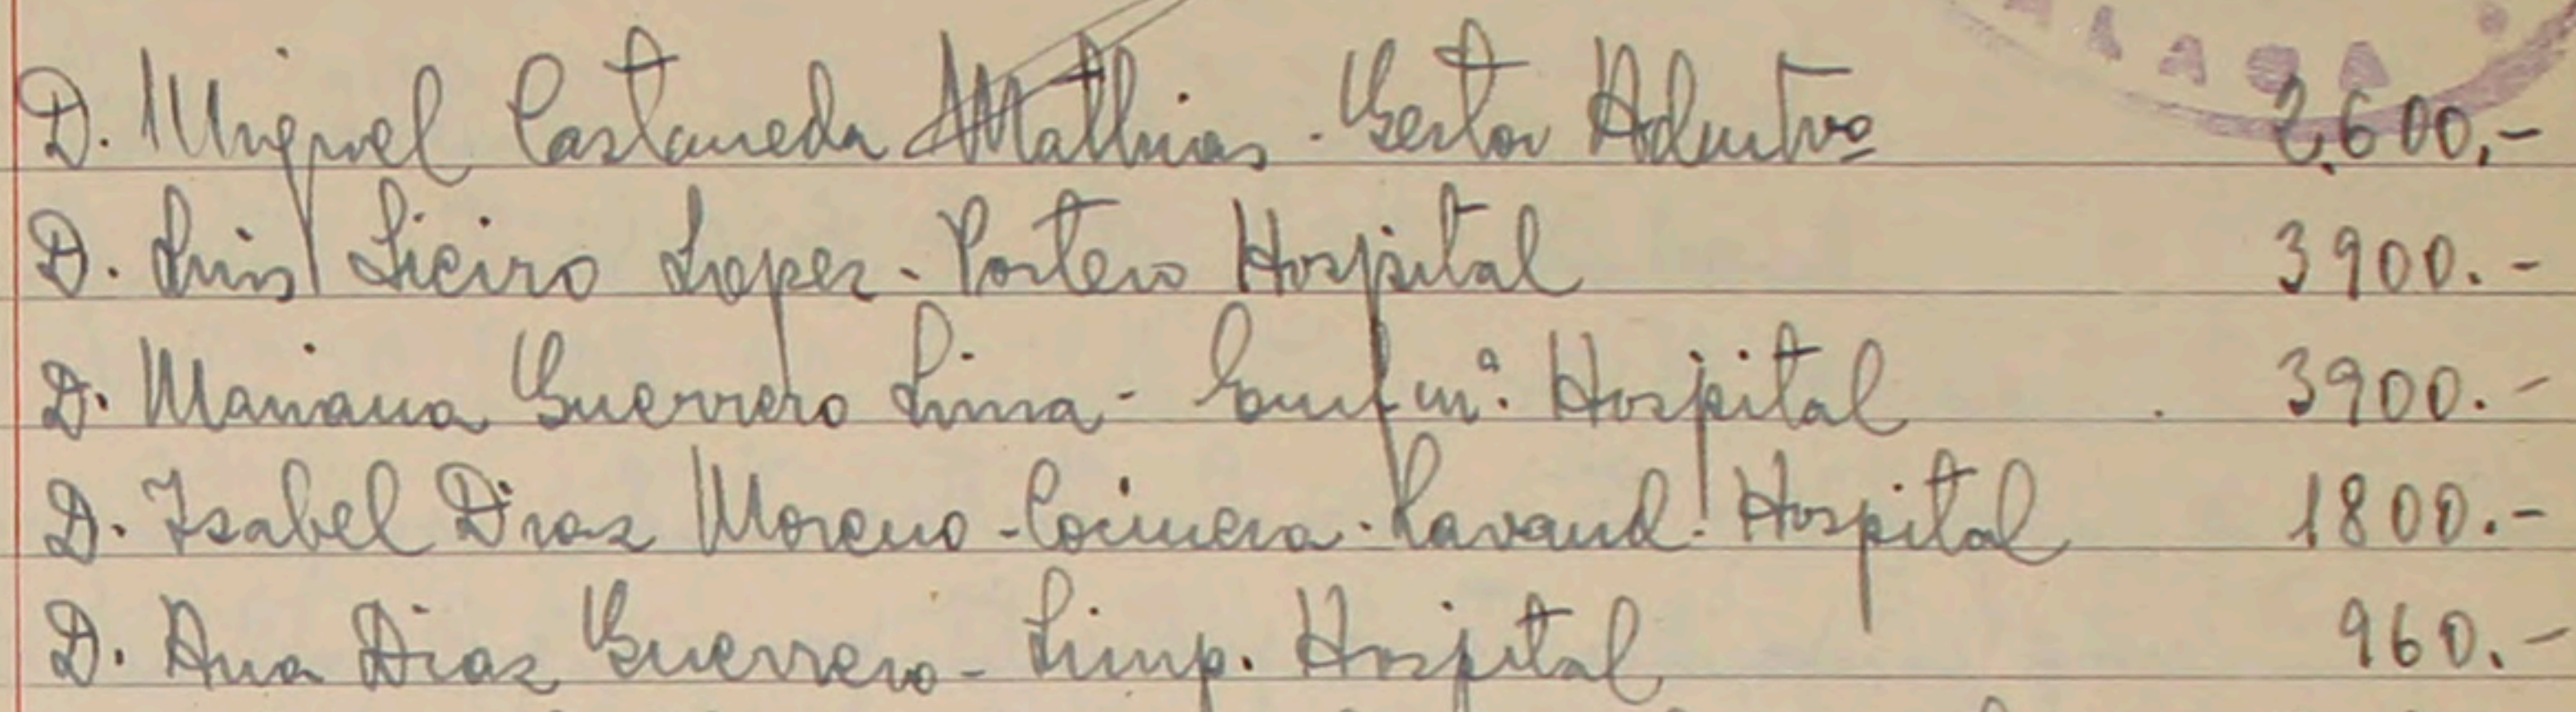 MALAGA
D. Miguel Castaneda Mathias. Gestor Admtvº 2.600,-
D. Luis Lieiro Lopez - Portero Hospital 3900.-
D. Mariana Guerrero Lima - Enfmª. Hospital 3900.-
D. Isabel Diaz Moreno - Cocinera. Lavand. Hospital 1800.-
D. Ana Diaz Guerrero - Limp. Hospital 960.-